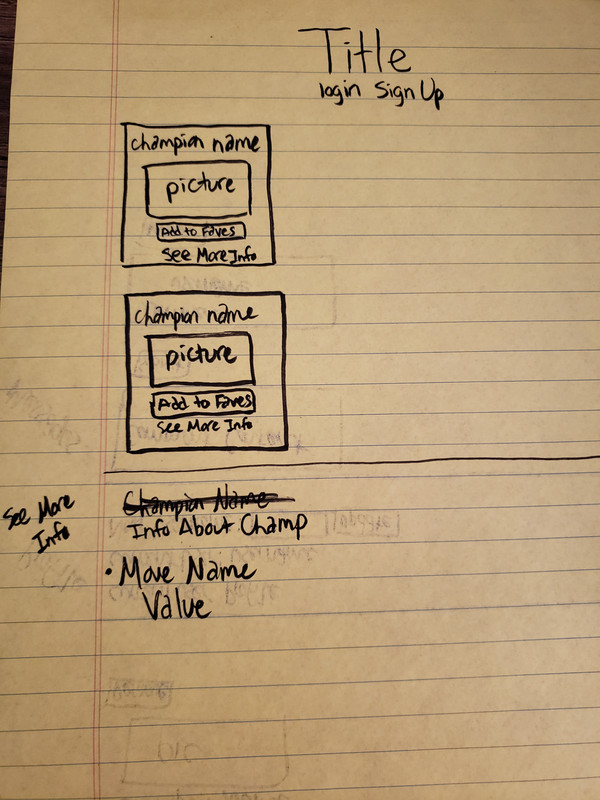 Title
login Sign Up
champion name
picture
Add to Faves
See More Info
champion name
picture
Add to Faves
See More Info
See More
Info
Champion Name
Info About Champ
• Move Name
Value